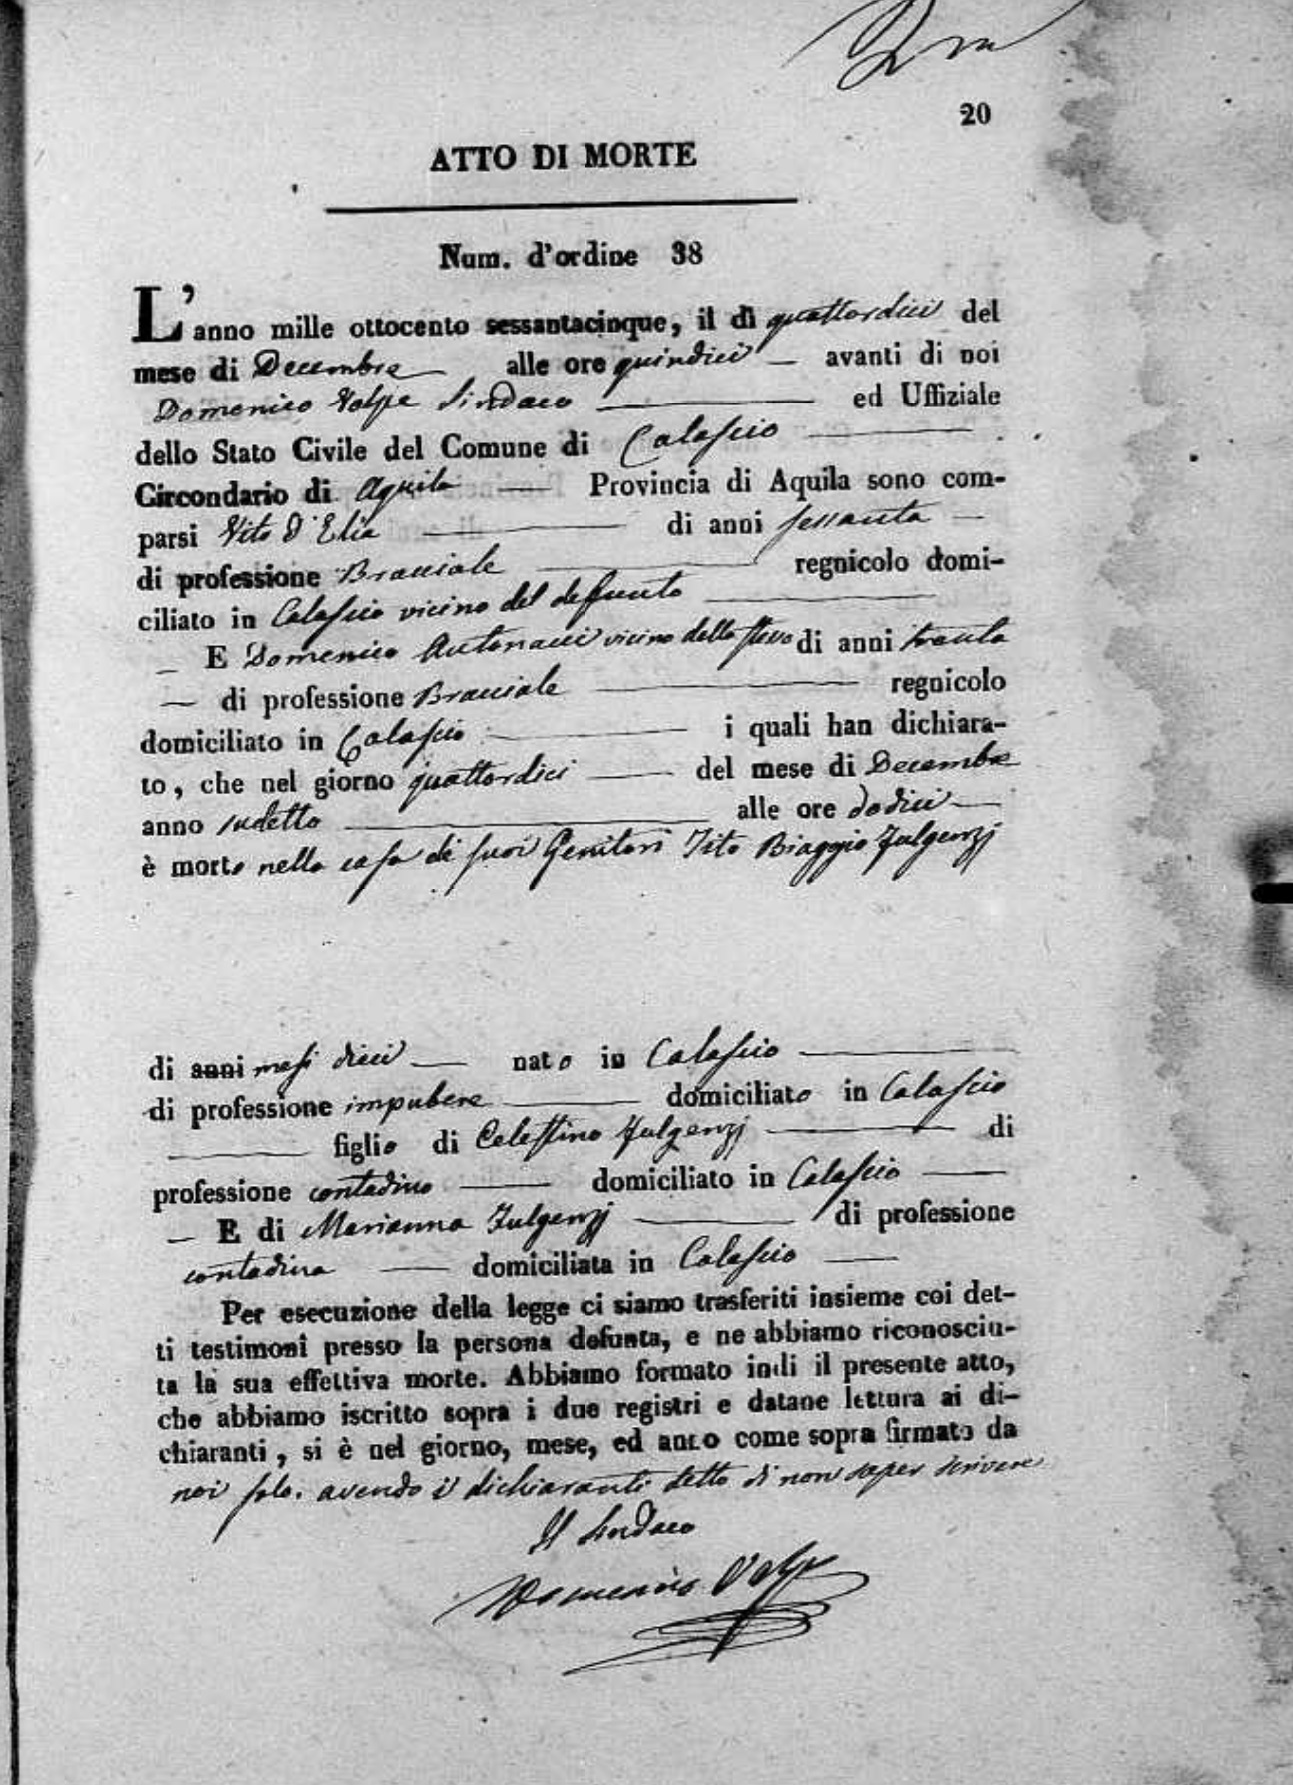 20
ATTO DI MORTE
Num. d'ordine 38
L'anno mille ottocento sessantacinque, il dì quattordici del
mese di Decembre alle ore quindici avanti di noi
Domenico Volpe Sindaco ed Uffiziale
dello Stato Civile del Comune di Calascio
Circondario di Aquila Provincia di Aquila sono com-
parsi Vito D'Elia di anni sessanta
di professione Bracciale regnicolo domi-
ciliato in Calascio vicino del defunto
E Domenico Antonacci vicino dello stesso di anni trenta
di professione Bracciale regnicolo
domiciliato in Calascio i quali han dichiara-
to, che nel giorno quattordici del mese di Decembre
anno sudetto alle ore dodici
è morto nella casa de suoi Genitori Tito Biaggio Fulgenzj
di anni mesi dieci nato in Calascio
di professione impubere domiciliato in Calascio
figlio di Celestino Fulgenzj di
professione contadino domiciliato in Calascio
E di Marianna Fulgenzj di professione
contadina domiciliata in Calascio
Per esecuzione della legge ci siamo trasferiti insieme coi det-
ti testimoni presso la persona defunta, e ne abbiamo riconosciu-
ta la sua effettiva morte. Abbiamo formato indi il presente atto,
che abbiamo iscritto sopra i due registri e datane lettura ai di-
chiaranti, si è nel giorno, mese, ed anno come sopra firmato da
noi solo. avendo i dichiaranti detto di non saper scrivere
Il Sindaco
Domenico Volpe